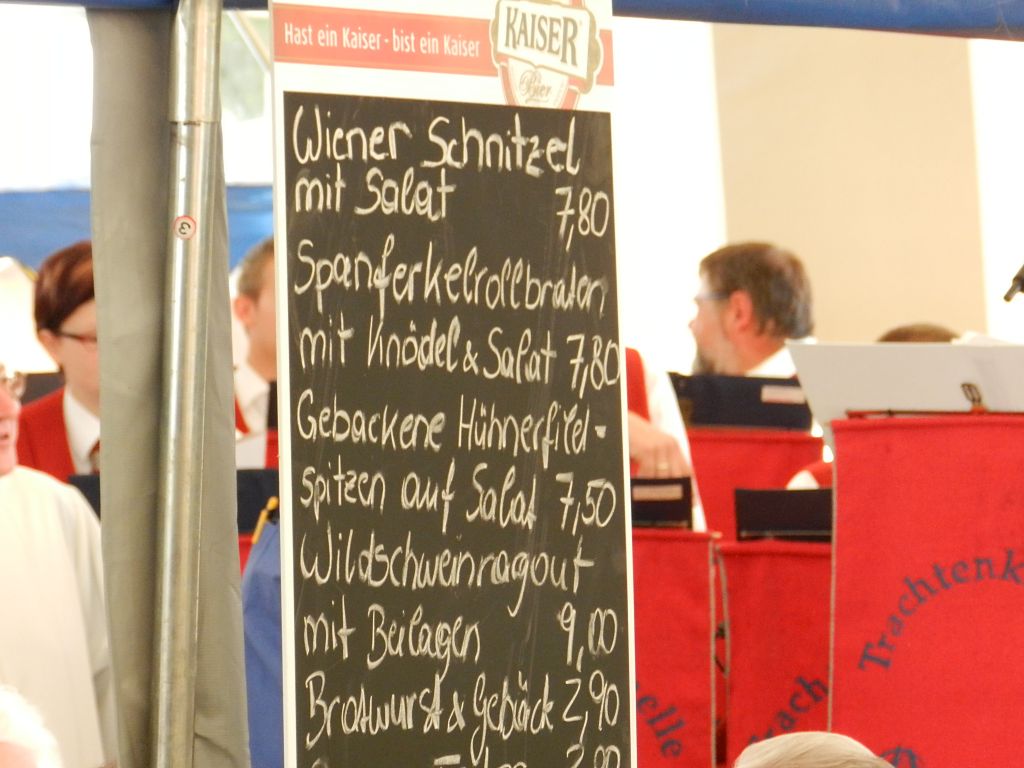 Hast ein Kaiser - bist ein Kaiser
KAISER
Bier
Wiener Schnitzel
mit Salat 7,80
Spanferkelrollbraten
mit Knödel & Salat 7,80
Gebackene Hühnerfilet-
spitzen auf Salat 7,50
Wildschweinragout
mit Beilagen 9,00
Bratwurst & Gebäck 2,90
3
Trachtenk
elle
Trach